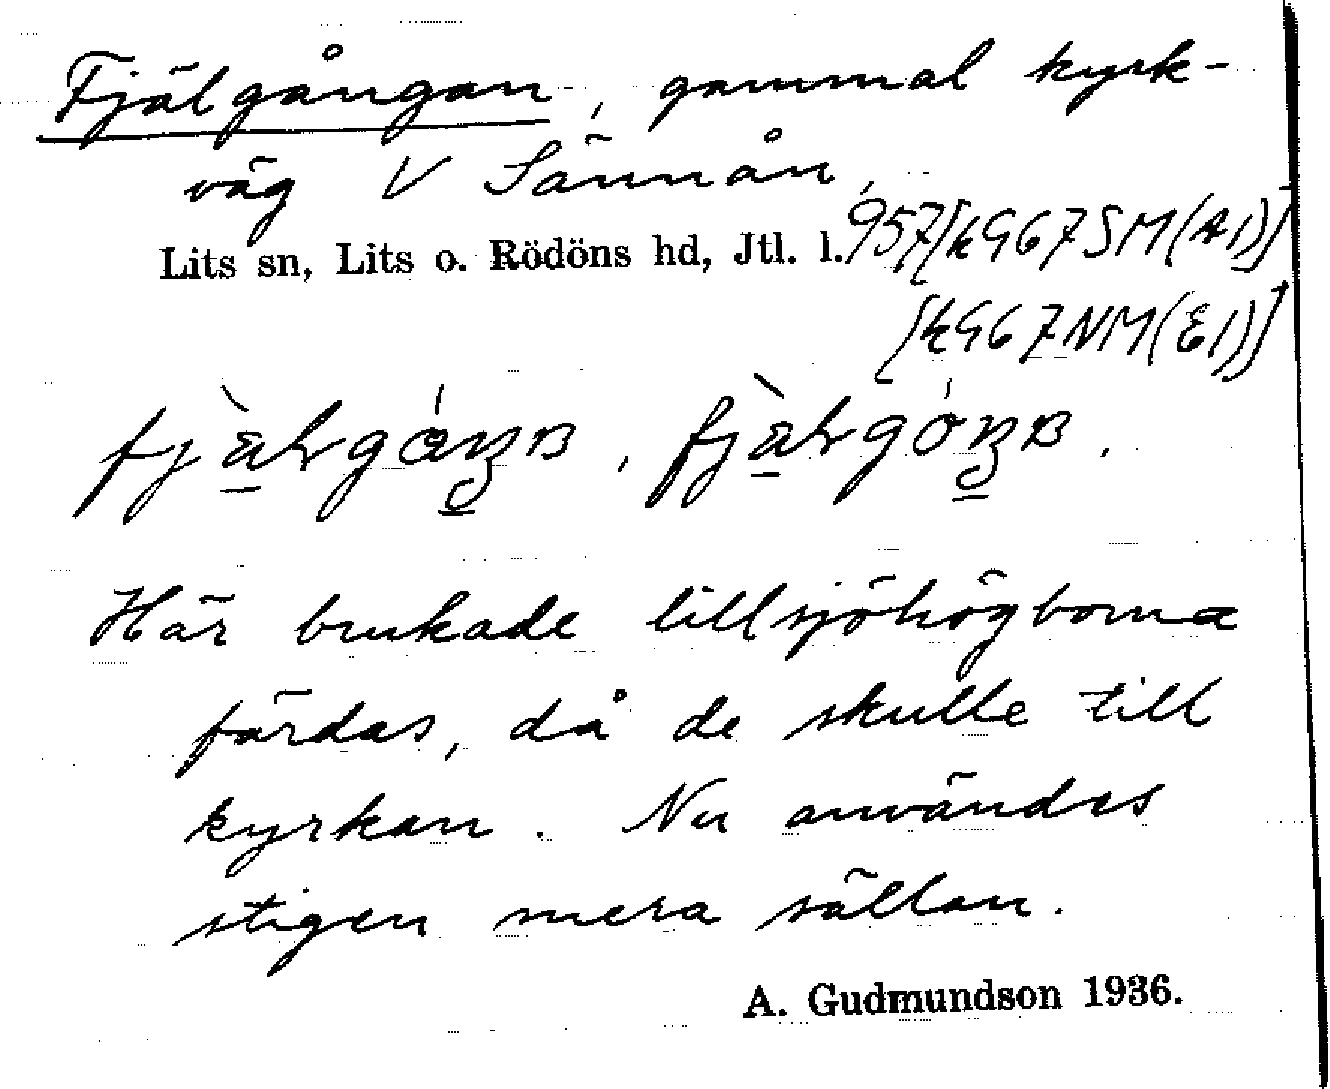 Fjälgångan, gammal kyrk-
väg V Sännån,
Lits sn, Lits o. Rödöns hd, Jtl. l. 957[k967SM(A1)]
[k967NM(E1)]
Här brukade lillsjöhögborna
färdas, då de skulle till
kyrkan. Nu användes
stigen mera sällan.
A. Gudmundson 1936.